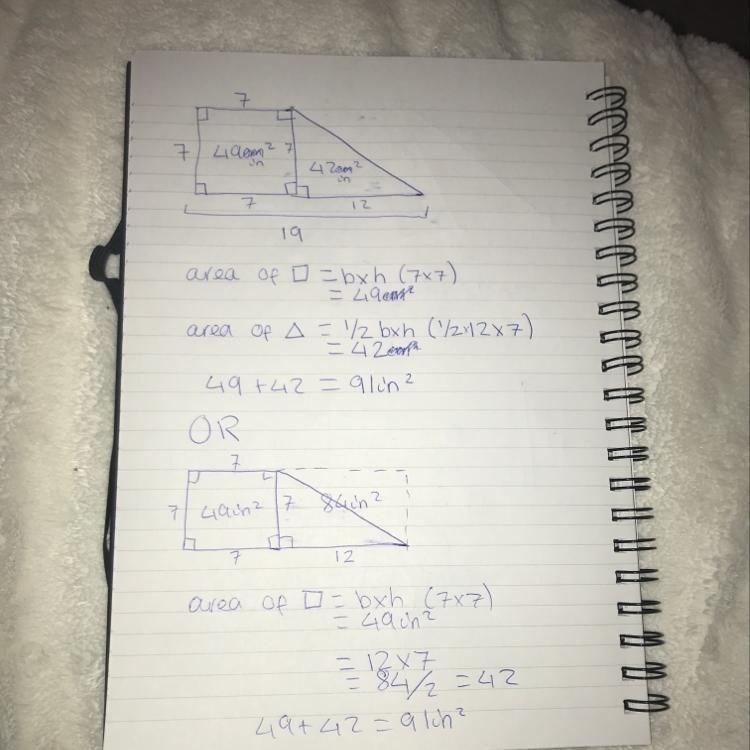 7
7 49in² 7 42in²
7 12
19
area of □ = bxh (7x7)
= 49
area of △ = 1/2 bxh (1/2x12x7)
= 42
49 + 42 = 91in²
OR
7
7 49in² 7 84in²
7 12
area of □ = bxh (7x7)
= 49in²
= 12x7
= 84/2 = 42
49 + 42 = 91in²